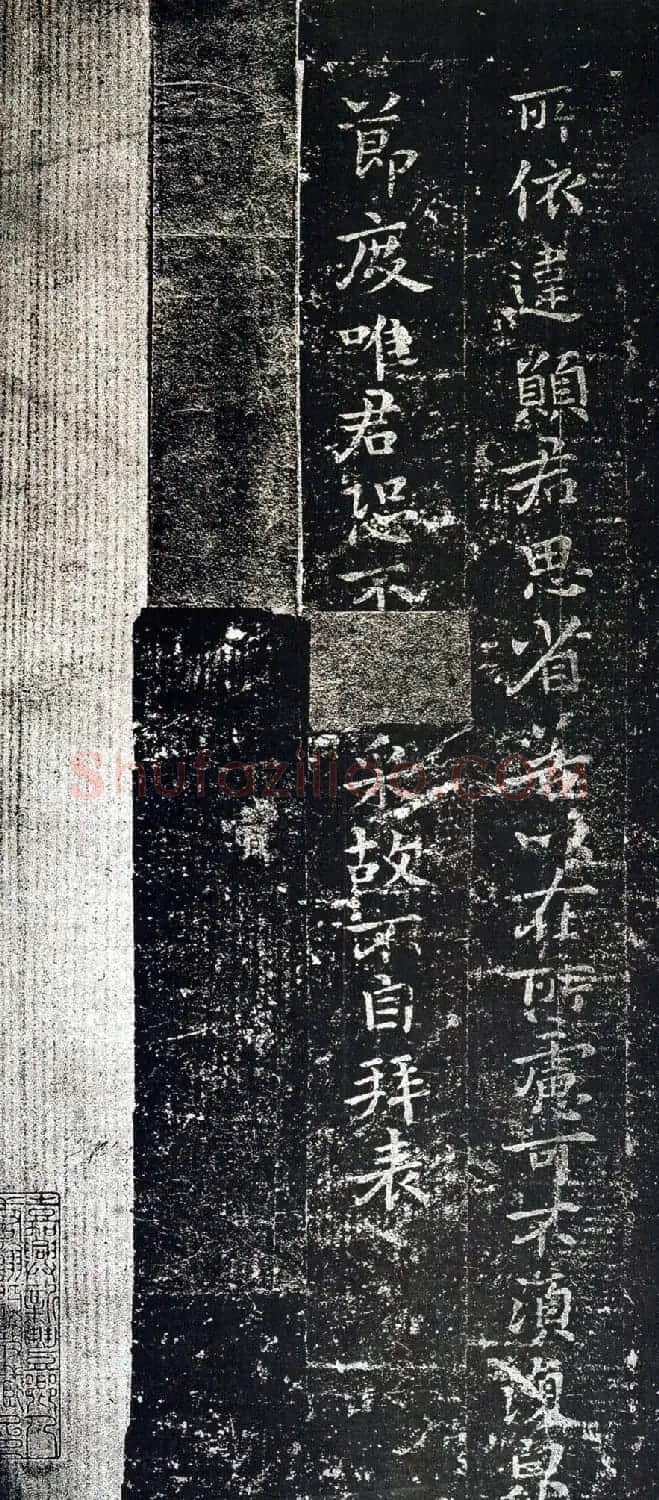 所依違願君思省若以在所慮可不須復皃
節度唯君恐不采故不自拜表
Shufaziliao.COM